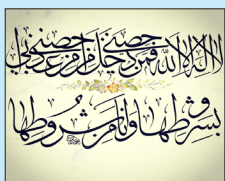 لا اله الا الله حصنی فمن دخل حصنی امن من عذابی
بشرطها و شروطها وانا من شروطها